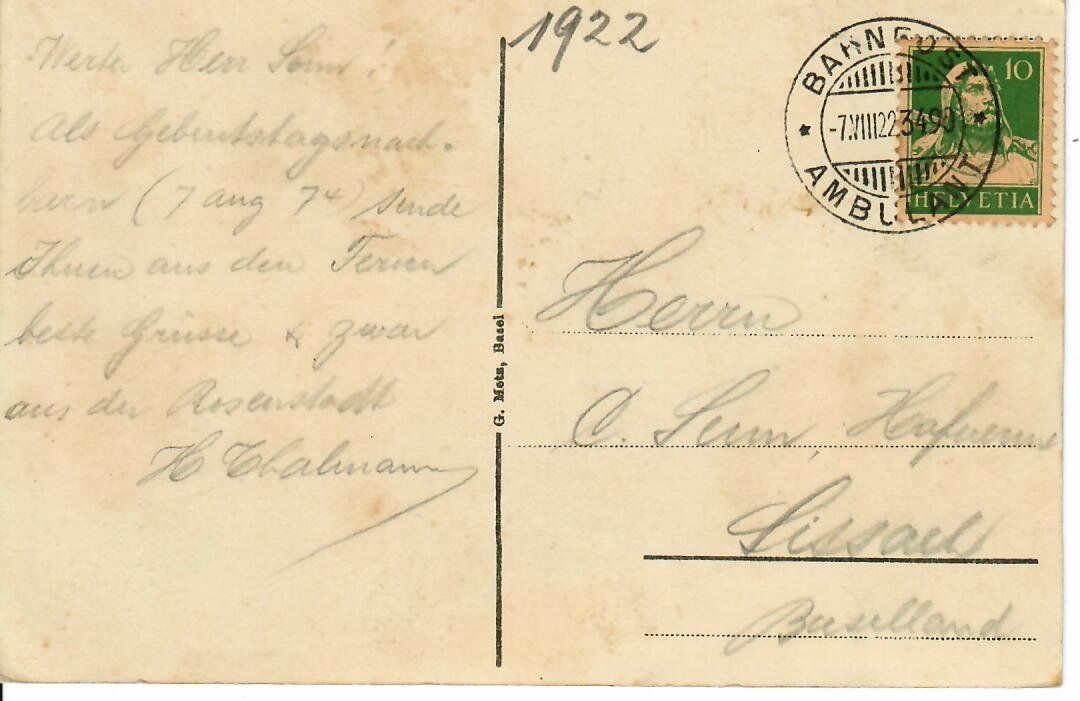 1922
Werter Herr Senn!
Als Geburtstagsnach-
barn (7 aug 74) sende
Ihnen aus den Ferien
beste Grüsse & zwar
aus der Rosenstadt
H Thalmann
G. Metz, Basel
BAHNPOST
-7.VIII22 3490
AMBULANT
10
HELVETIA
Herrn
C. Senn
Sissach
Baselland